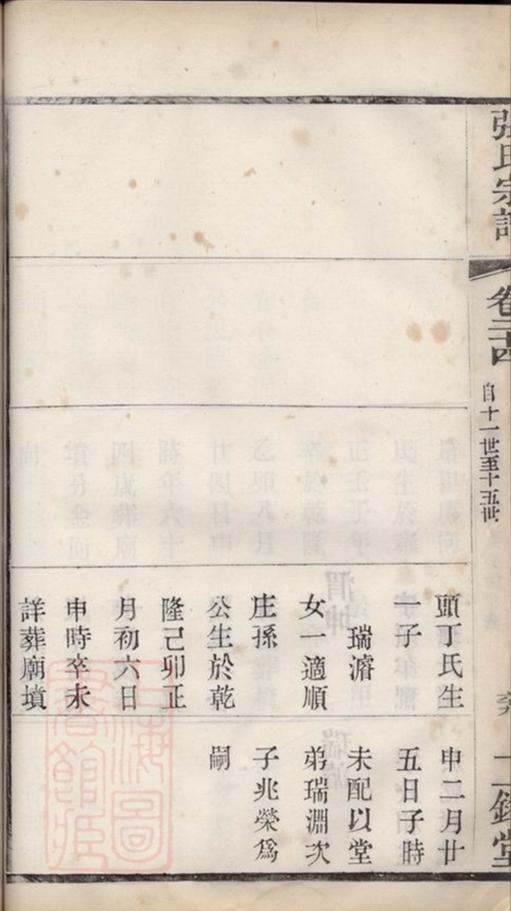 張氏宗譜
卷三十四
自十一世至十五世
二銘堂
頭丁氏生
一子
瑞濬
女一適順
庄孫
公生於乾
隆己卯正
月初六日
申時卒未
詳葬廟墳
申二月廿
五日子時
未配以堂
弟瑞淵次
子兆榮爲
嗣
上海圖書館藏